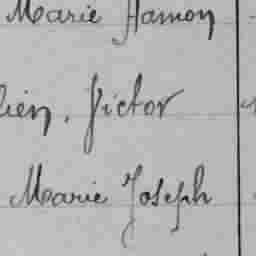 Marie Hamon
lien, Victor
Marie Joseph